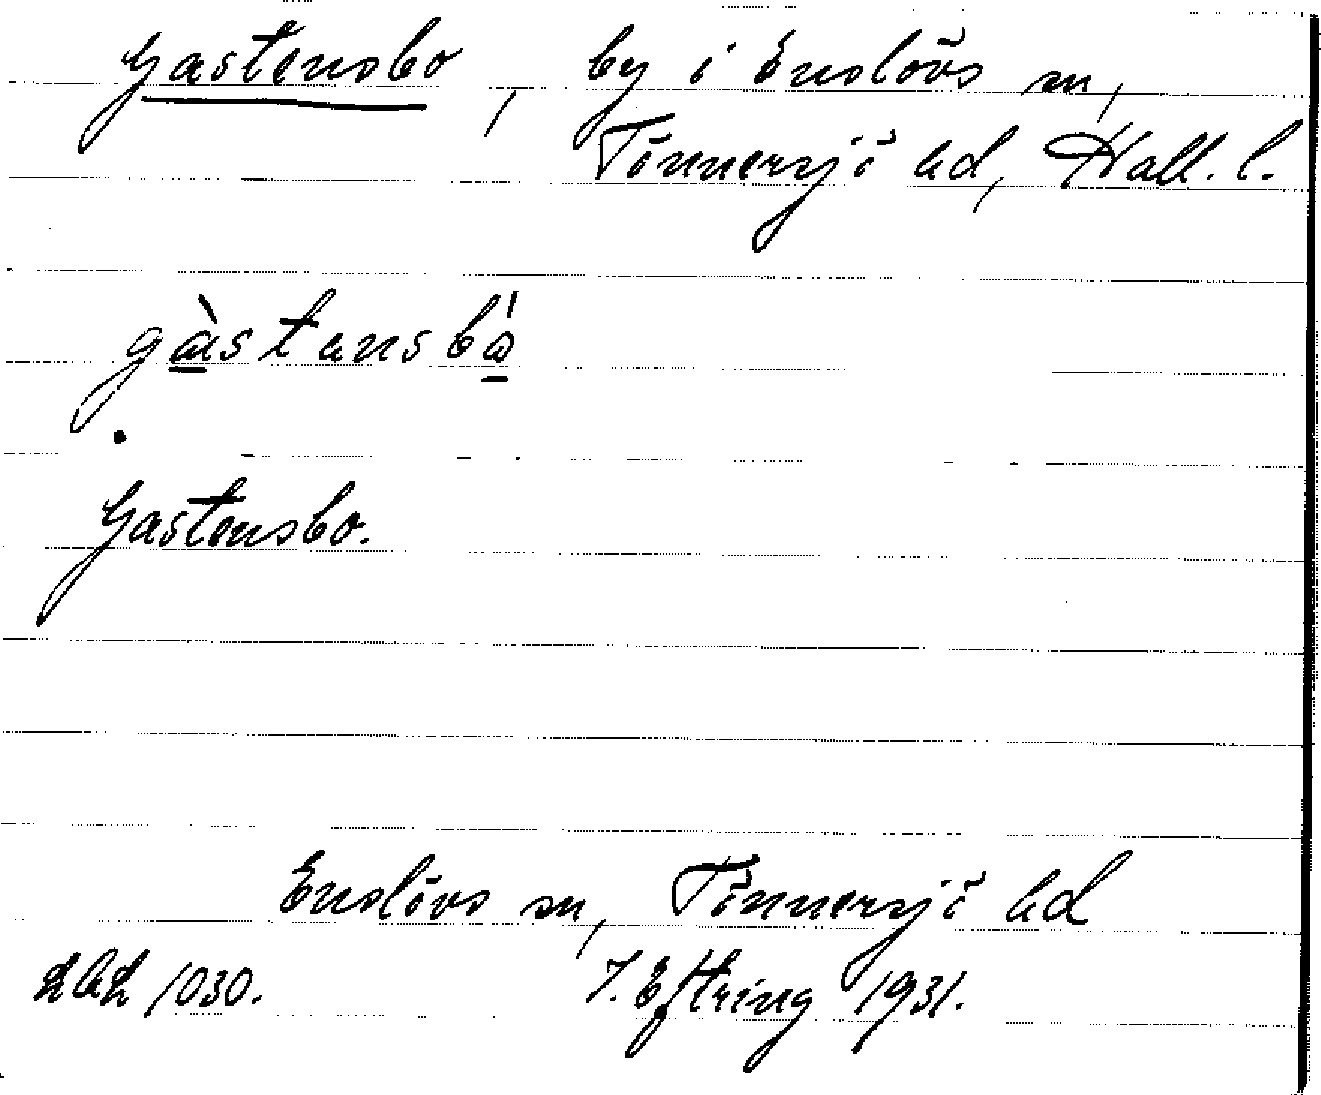 Gastensbo, by i Enslövs sn,
Tönnersjö hd, Hall. l.
gàstensbó
Gastensbo.
Enslövs sn, Tönnersjö hd
1030. Eftring 1931.